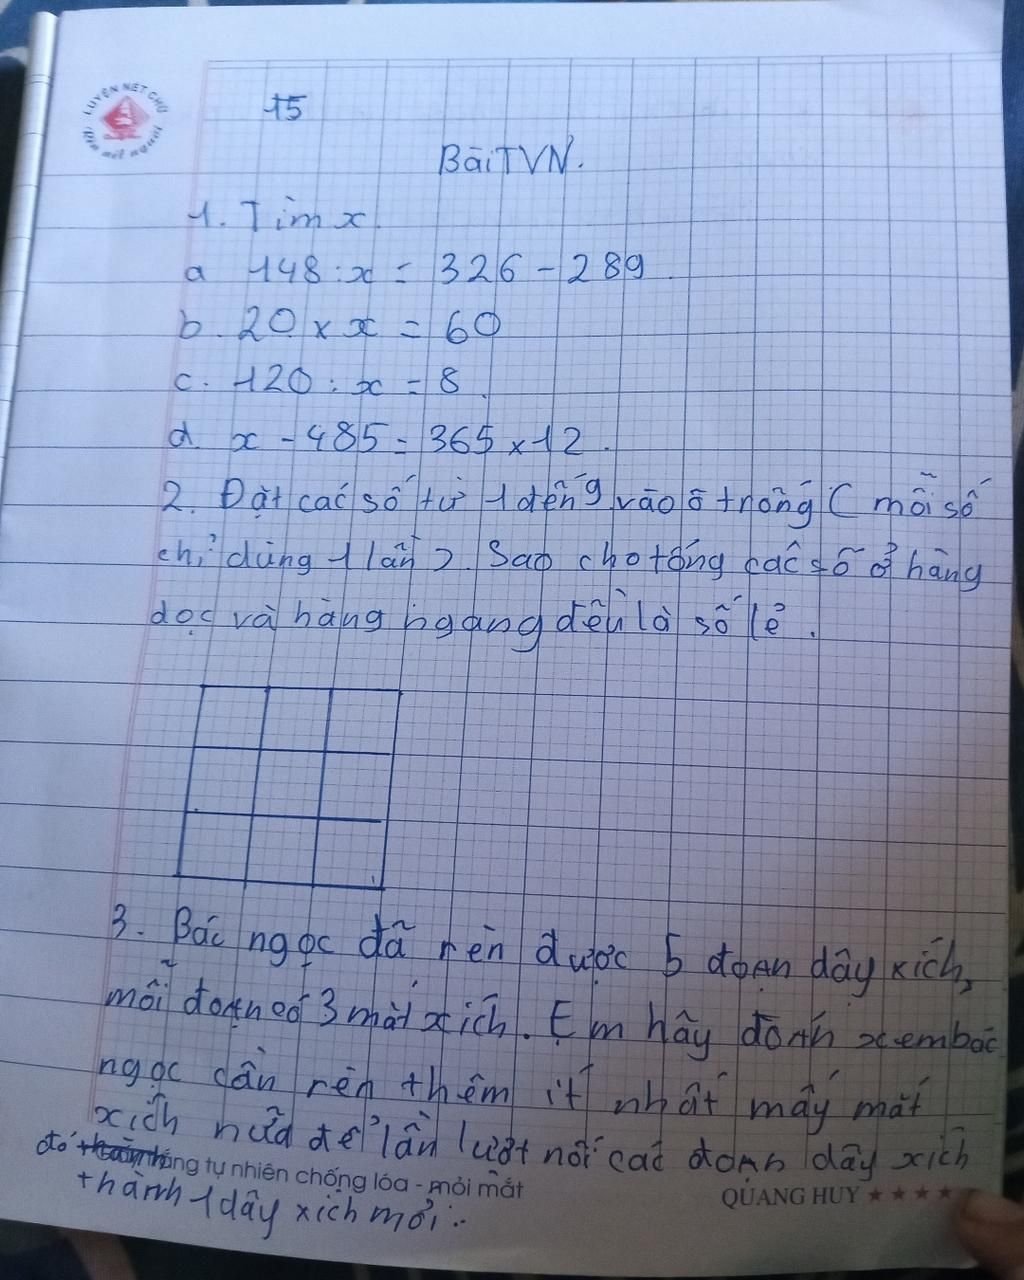 LUYỆN NÉT CHỮ
Rèn nết người
15
Bài TVN.
1. Tìm x.
a 148 : x = 326 - 289.
b. 20 x x = 60
c. 120 : x = 8.
d. x - 485 = 365 x 12.
2. Đặt các số từ 1 đến 9 vào ô trống ( mỗi số
chỉ dùng 1 lần ). Sao cho tổng các số ở hàng
dọc và hàng ngang đều là số lẻ.
3. Bác ngọc đã rèn được 5 đoạn dây xích,
mỗi đoạn có 3 mắt xích. Em hãy đoán xem bác
ngọc cần rèn thêm ít nhất mấy mắt
xích nữa để lần lượt nối các đoạn dây xích
đó thành 1 dây xích mới.
tự nhiên chống lóa - mỏi mắt
QUANG HUY ★★★★